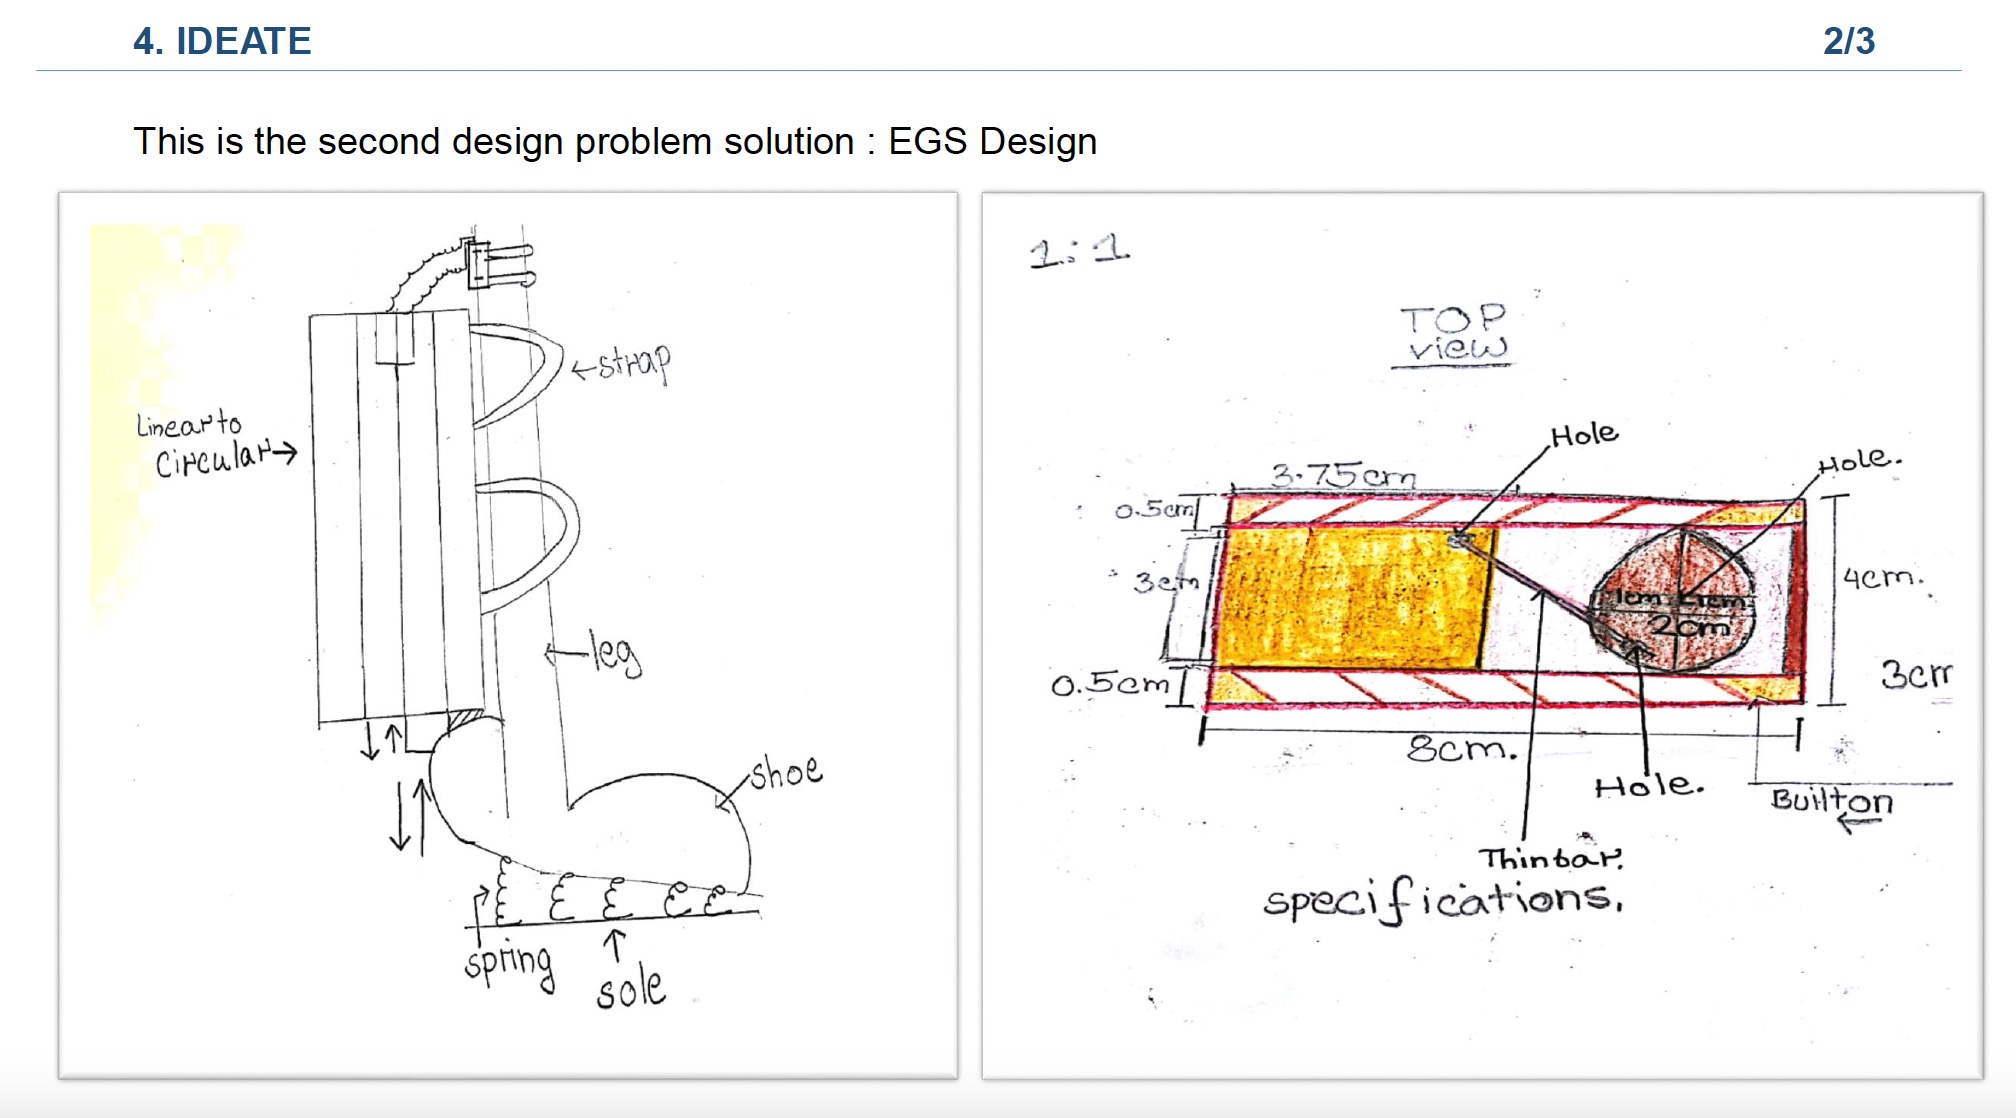 4. IDEATE
2/3
This is the second design problem solution : EGS Design
←strap
Linear to
Circular→
←leg
shoe
spring
sole
1:1
TOP
view
Hole
Hole.
3.75cm
0.5cm
3cm
4cm.
1cm 1cm
2cm
0.5cm
3cm
8cm.
Hole.
Builton
Thinbar.
specifications.